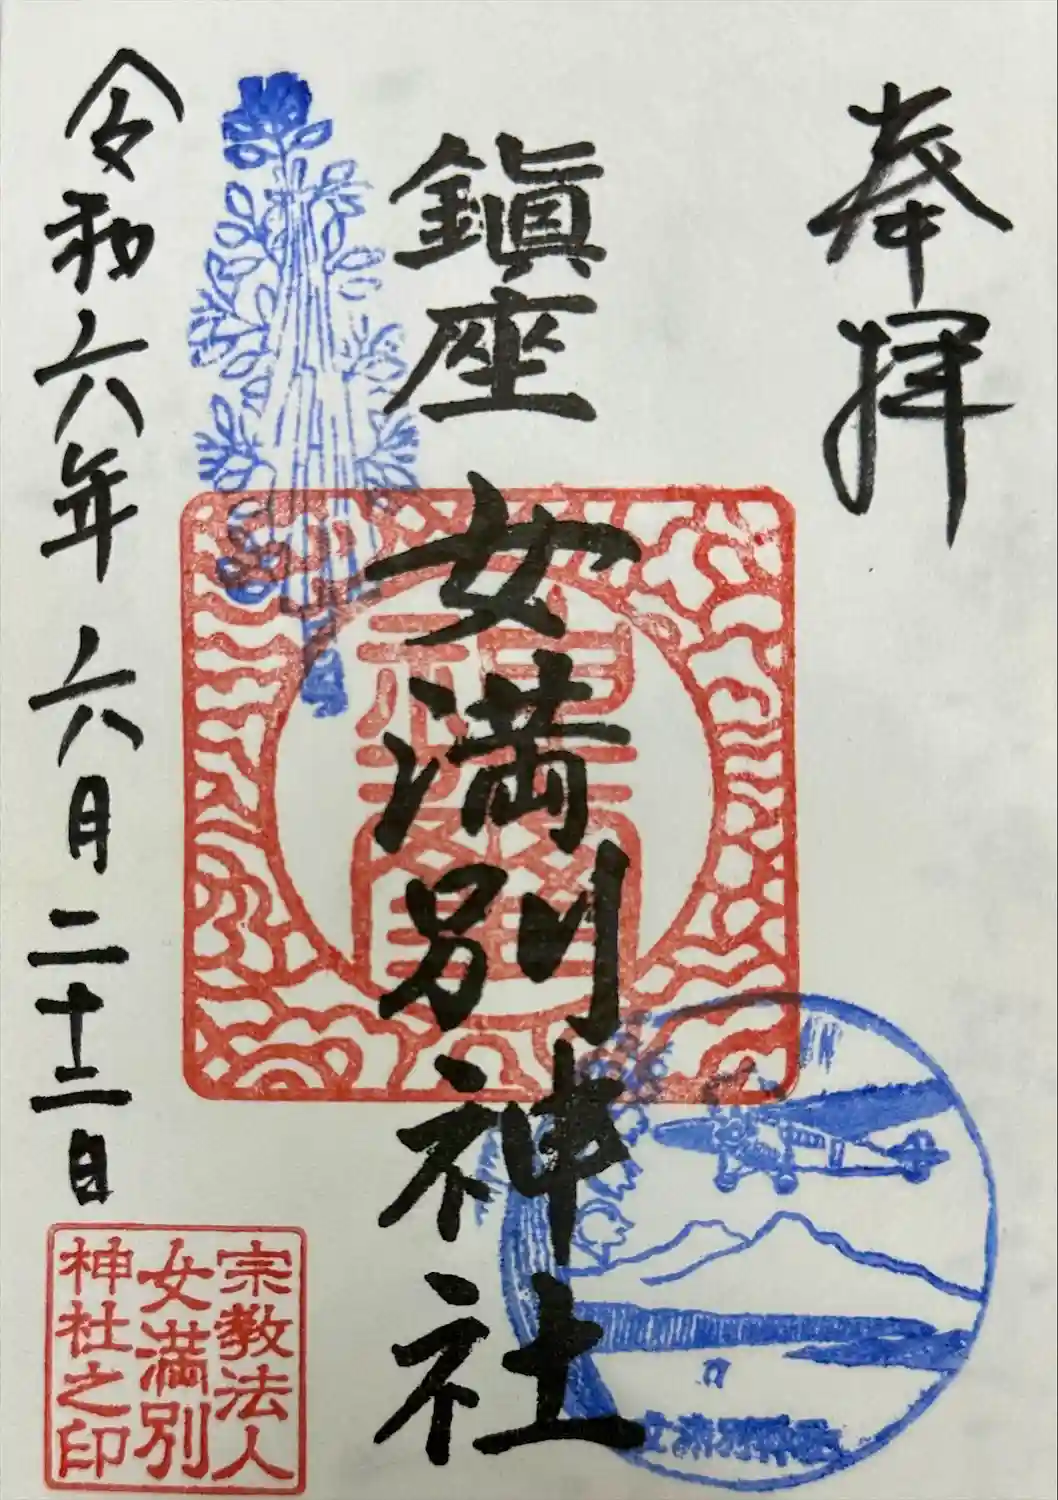 奉拝
鎮座
女満別神社
令和六年六月二十二日
宗教法人
女満別
神社之印
女満別神社